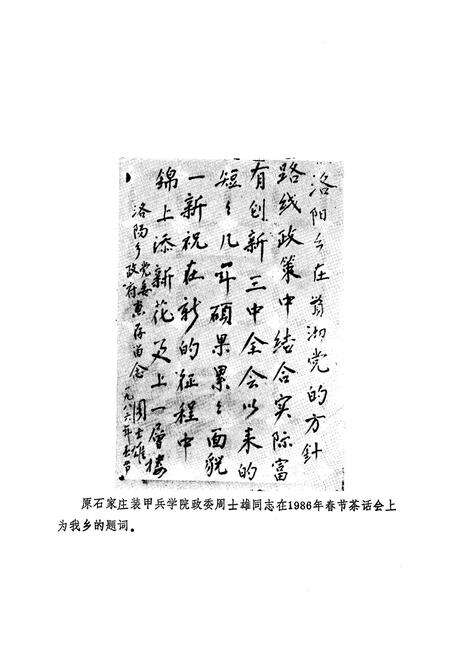 洛阳乡在贯彻党的方针
路线政策中结合实际富
有创新三中全会以来的
短々几年硕果累々面貌
一新祝在新的征程中
锦上添新花更上一層楼
洛阳乡党委
政府惠存留念
周士雄
一九八六年春节
原石家庄装甲兵学院政委周士雄同志在1986年春节茶话会上
为我乡的题词。